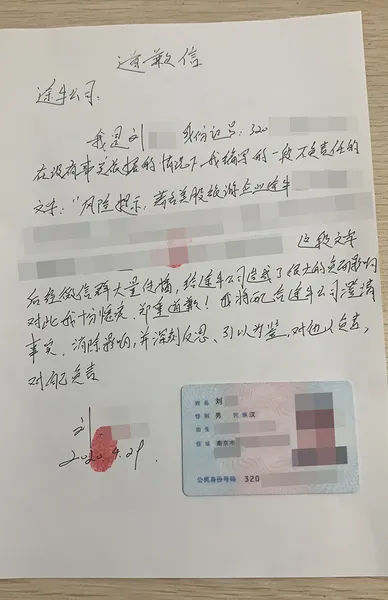 道歉信
途牛公司：
我是刘 身份证号：320
在没有事实依据的情况下我编写的一段不负责任的
文字："风险提示，著名美股旅游企业途牛
这段文字
后经微信群大量传播，给途牛公司造成了很大的负面影响
对此我十分愧疚，郑重道歉！我将配合途牛公司澄清
事实、消除影响，并深刻反思、引以为鉴，对他人负责，
对自己负责
刘
2020.4.29.
姓名 刘
性别 男 民族 汉
出生
住址 南京市
公民身份号码 320